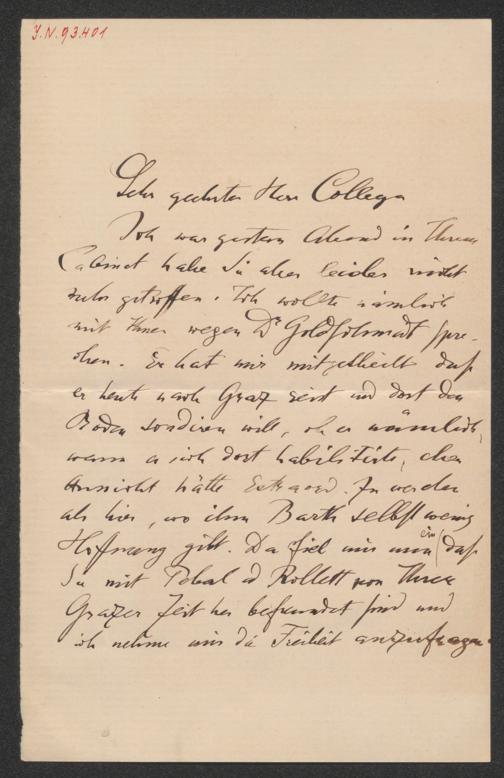 J.N. 93.401
Sehr geehrter Herr College
Ich war gestern Abend in Ihrem
Cabinet habe Sie aber leider nicht
mehr getroffen. Ich wollte nämlich
mit Ihnen wegen Dr Goldschmidt spre-
chen. Er hat mir mitgetheilt daß
er heute nach Graz reist und dort den
Boden sondiren will, ob er nämlich,
wenn er sich dort habilitirte, eher
Aussicht hätte Extraord. zu werden
als hier, wo ihm Barth selbst wenig
Hoffnung gibt. Da fiel mir nun ein daß
Sie mit Pebal u Rollett von Ihrer
Grazer Zeit her befreundet sind und
ich nehme mir die Freiheit anzufragen